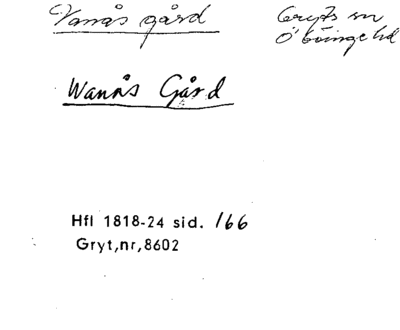 Vanås gård
Gryts sn
Ö Göinge hd
Wanås Gård
Hfl 1818-24 sid. 166
Gryt,nr,8602